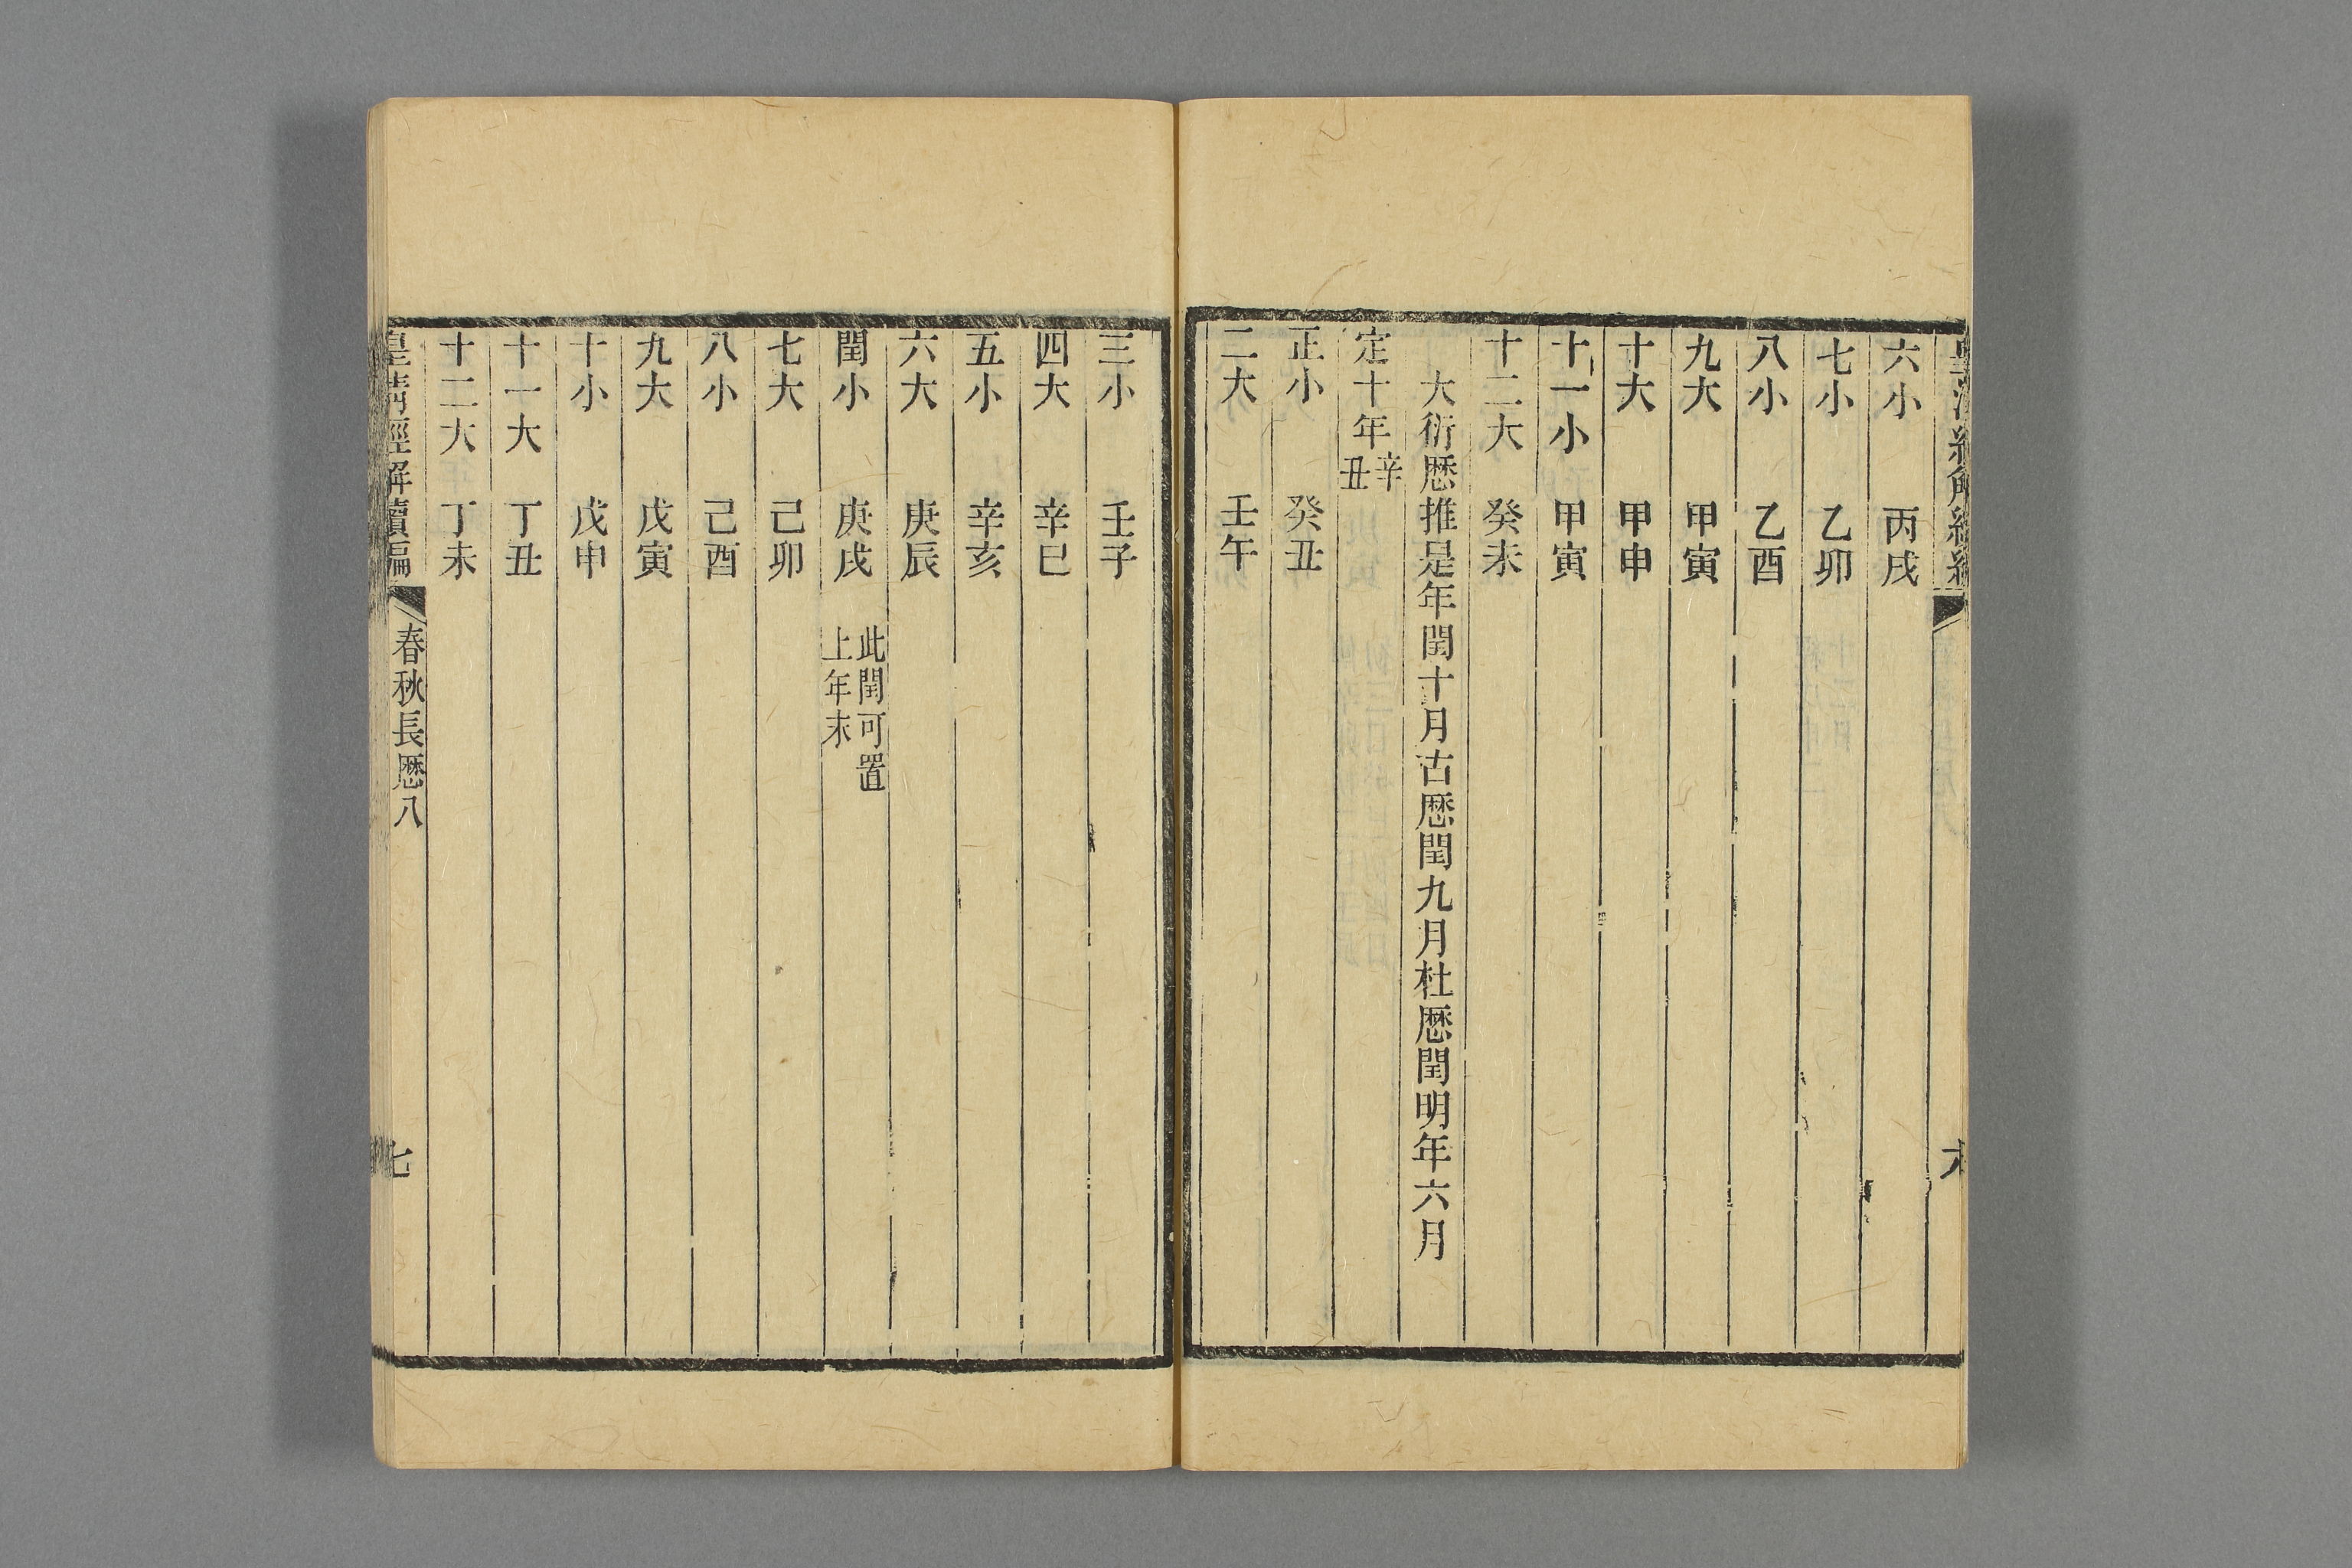 六小 丙戌
七小 乙卯
八小 乙酉
九大 甲寅
十大 甲申
十一小 甲寅
十二大 癸未
大衍厯推是年閏十月古厯閏九月杜厯閏明年六月
定十年辛丑
正小 癸丑
二大 壬午
三小 壬子
四大 辛巳
五小 辛亥
六大 庚辰
閏小 庚戌 此閏可置
上年末
七大 己卯
八小 己酉
九大 戊寅
十小 戊申
十一大 丁丑
十二大 丁未
皇清經解續編 春秋長厯八 七